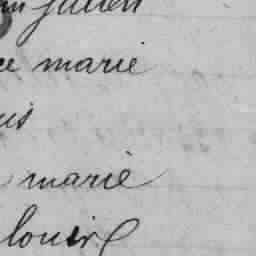 julien
ce marie
is
marie
louis